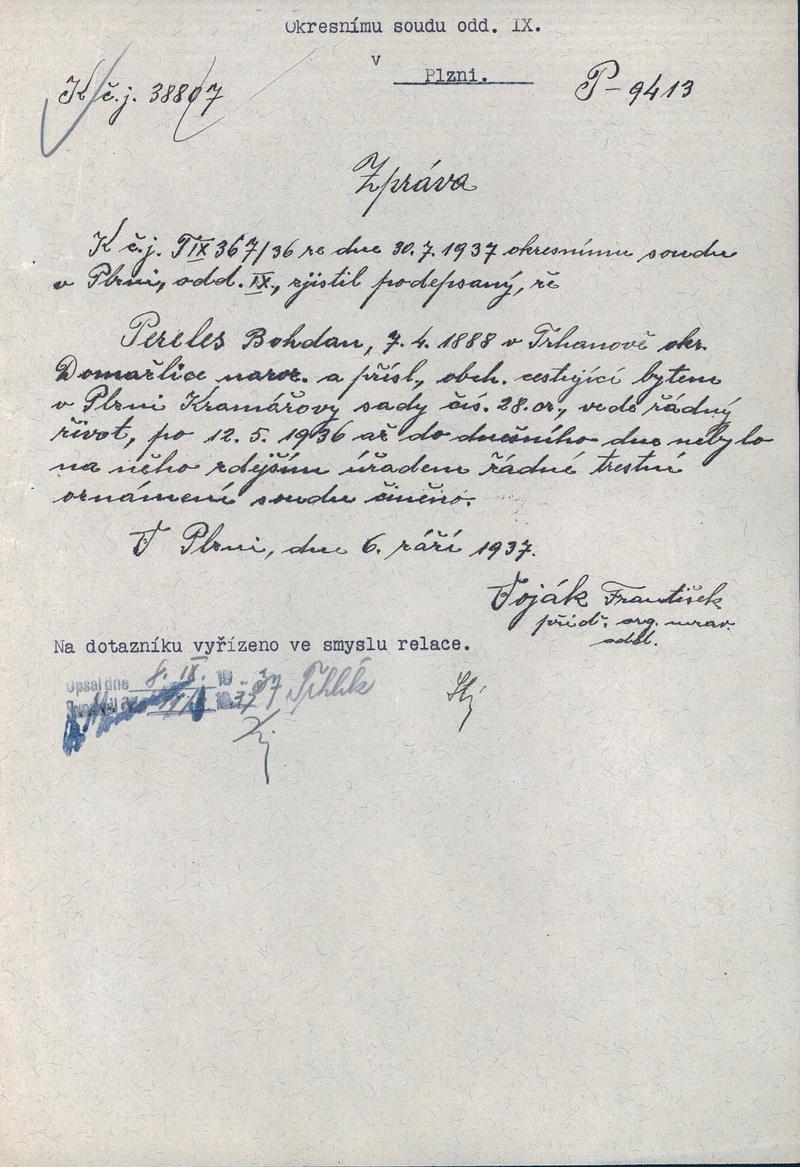 Okresnímu soudu odd. IX.
v
Plzni.
K č.j. 38807
P - 9413
Zpráva
K č.j. T IX 367/36 ze dne 30.7.1937 okresnímu soudu
v Plzni, odd. IX., zjistil podepsaný, že
Pereles Bohdan, 7.4.1888 v Trhanově okr.
Domažlice naroz. a přísl., obch. cestující bytem
v Plzni Kramářovy sady čís. 28.or., vede řádný
život, po 12.5.1936 až do dnešního dne nebylo
na něho zdejším úřadem řádné trestní
oznámení soudu činěno.
V Plzni, dne 6. září 1937.
Voják František
příděl. org. mrav.
odděl.
Na dotazníku vyřízeno ve smyslu relace.
Opsal dne 8. IX. 1937 Trhlík
19 37